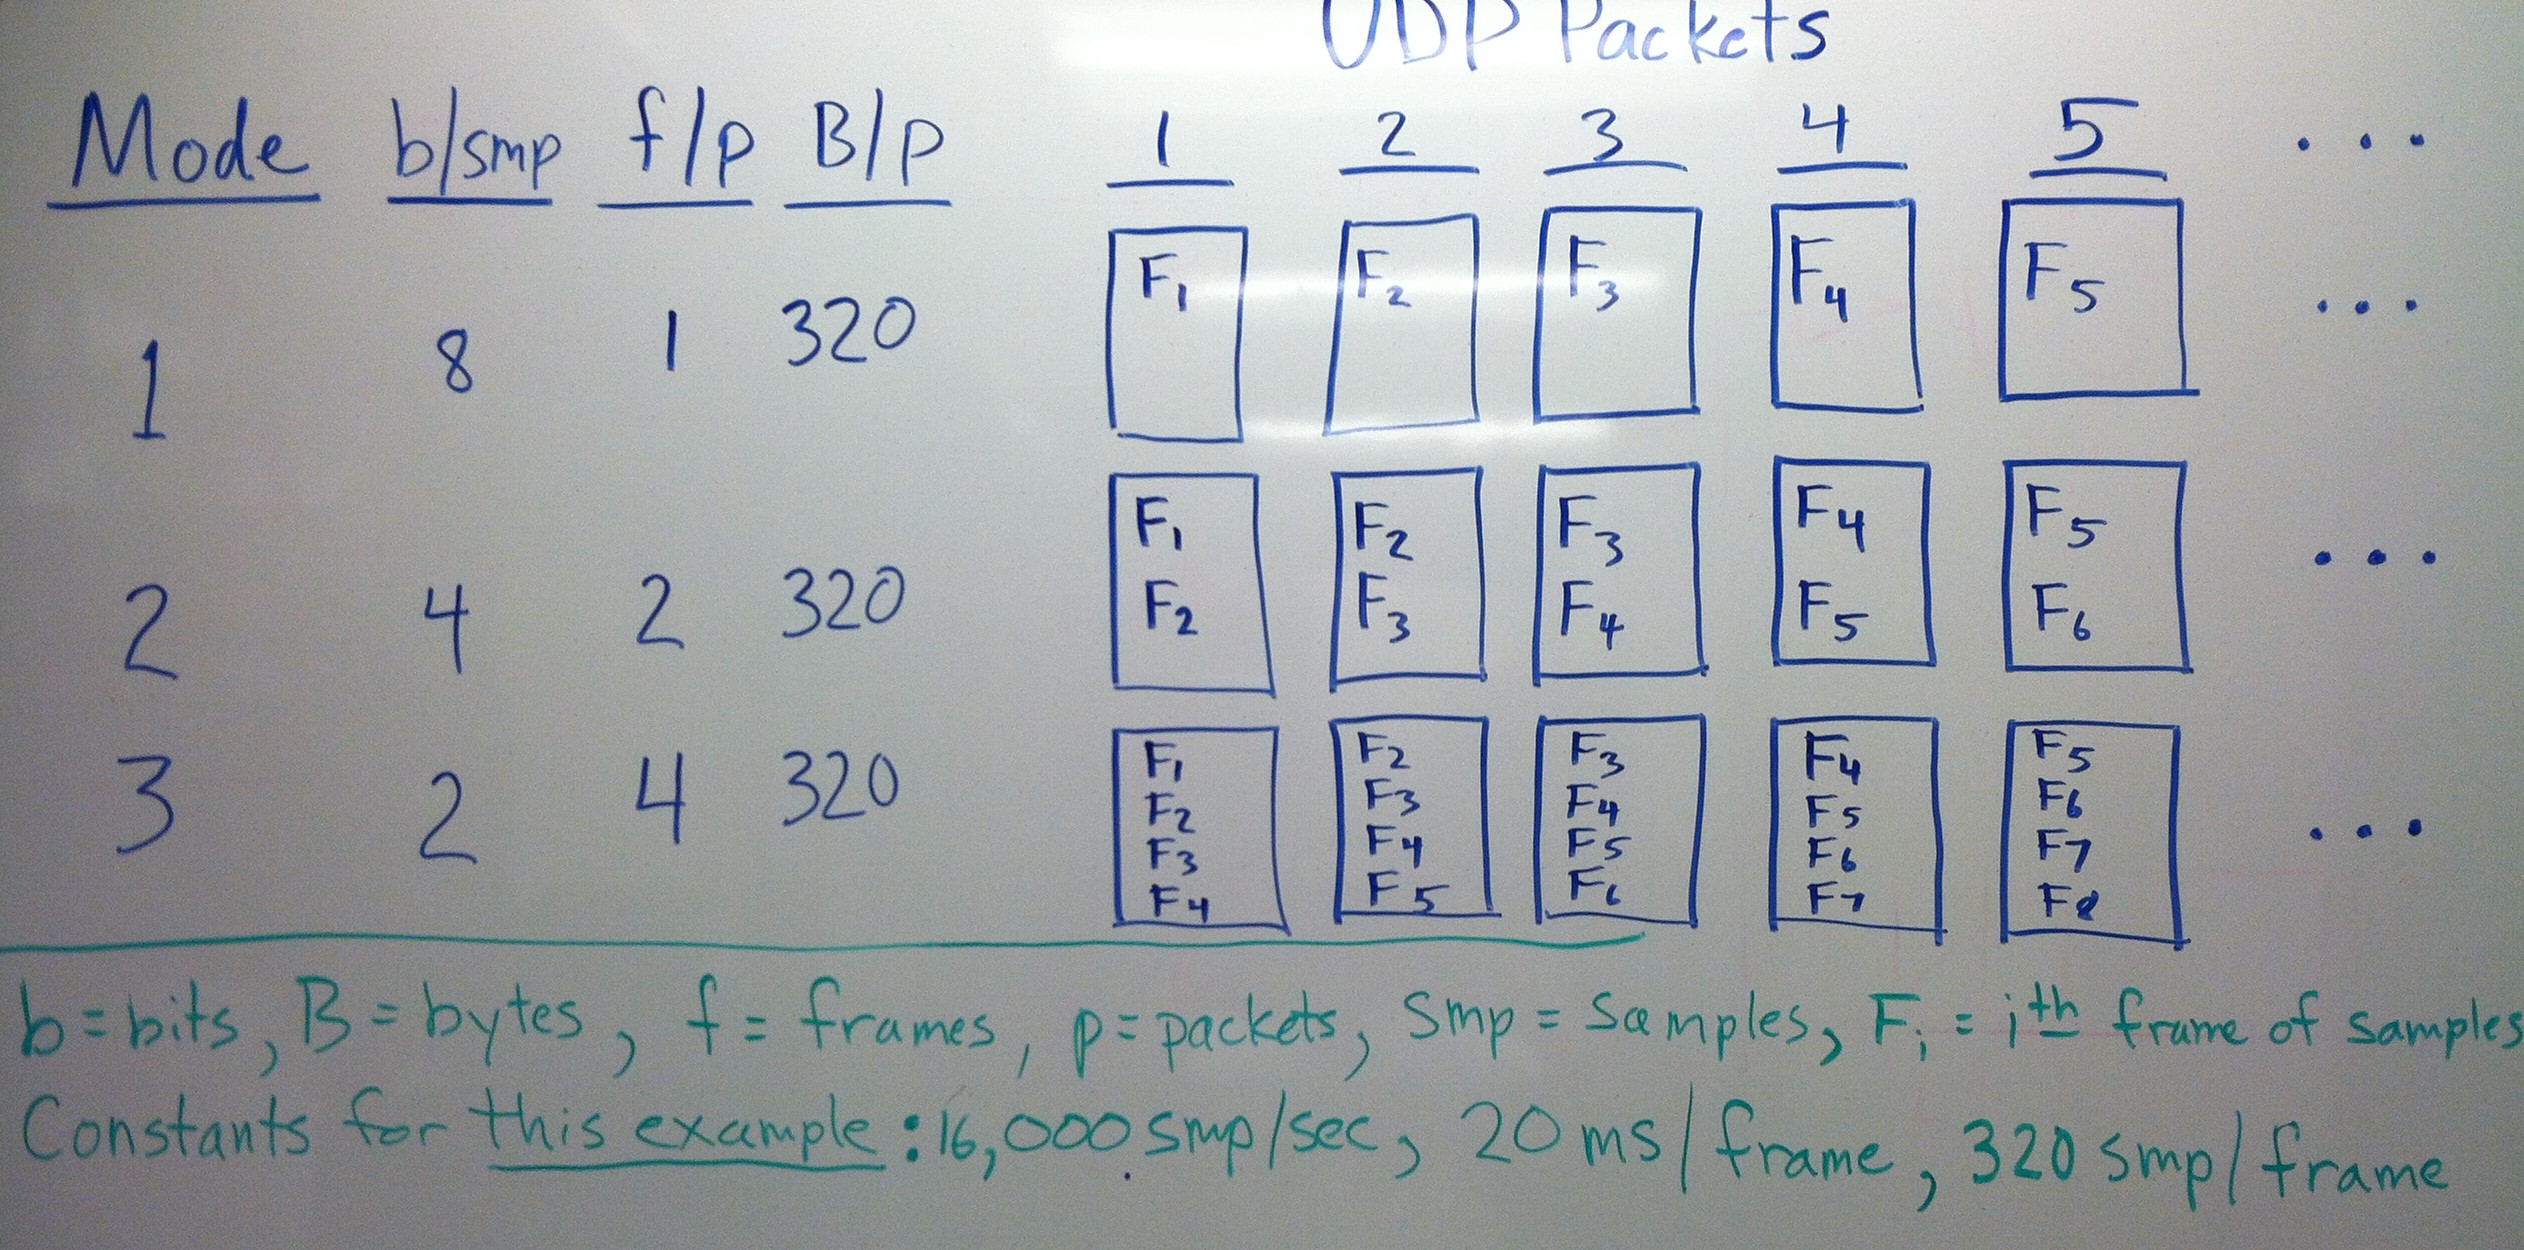 UDP Packets
Mode b/smp f/p B/p 1 2 3 4 5 ...
1 8 1 320 F1 F2 F3 F4 F5 ...
2 4 2 320 F1 F2 F3 F4 F5 ...
F2 F3 F4 F5 F6
3 2 4 320 F1 F2 F3 F4 F5 ...
F2 F3 F4 F5 F6
F3 F4 F5 F6 F7
F4 F5 F6 F7 F8
b=bits, B=bytes, f=frames, p=packets, smp=samples, Fi=ith frame of samples
Constants for this example: 16,000 smp/sec, 20 ms/frame, 320 smp/frame